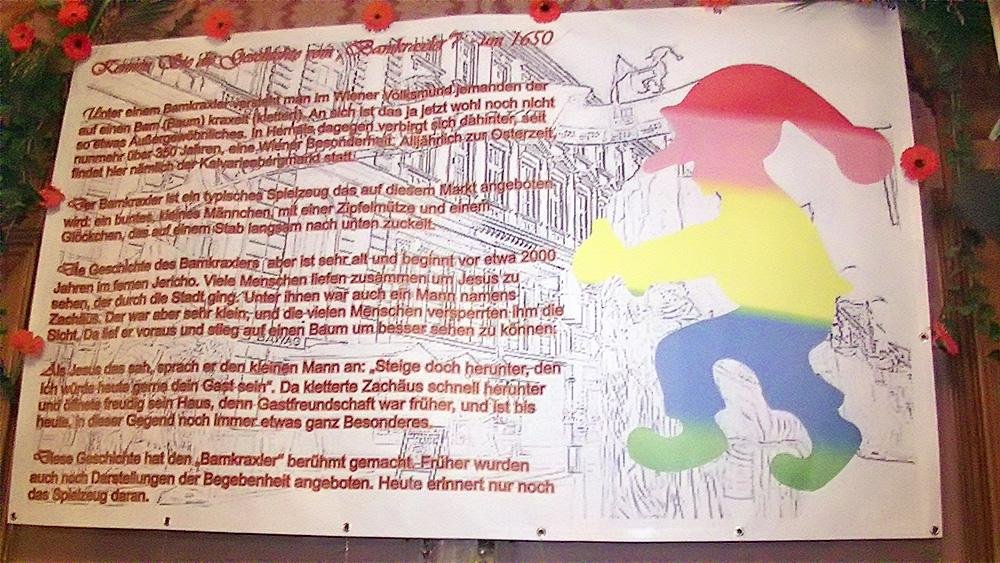 Kennen Sie die Geschichte vom „Bamkraxler"? um 1650
Unter einem Bamkraxler versteht man im Wiener Volksmund jemanden der
auf einen Bam (Baum) kraxelt (klettert). An sich ist das ja jetzt wohl noch nicht
so etwas Außergewöhnliches. In Hernals dagegen verbirgt sich dahinter, seit
nunmehr über 350 Jahren, eine Wiener Besonderheit. Alljährlich zur Osterzeit,
findet hier nämlich der Kalvarienbergmarkt statt.
Der Bamkraxler ist ein typisches Spielzeug das auf diesem Markt angeboten
wird: ein buntes, kleines Männchen, mit einer Zipfelmütze und einem
Glöckchen, das auf einem Stab langsam nach unten zuckelt.
Die Geschichte des Bamkraxlers aber ist sehr alt und beginnt vor etwa 2000
Jahren im fernen Jericho. Viele Menschen liefen zusammen um Jesus zu
sehen, der durch die Stadt ging. Unter ihnen war auch ein Mann namens
Zachäus. Der war aber sehr klein, und die vielen Menschen versperrten ihm die
Sicht. Da lief er voraus und stieg auf einen Baum um besser sehen zu können.
BAWAG
Als Jesus das sah, sprach er den kleinen Mann an: „Steige doch herunter, den
ich würde heute gerne dein Gast sein". Da kletterte Zachäus schnell herunter
und öffnete freudig sein Haus, denn Gastfreundschaft war früher, und ist bis
heute, in dieser Gegend noch immer etwas ganz Besonderes.
Diese Geschichte hat den „Bamkraxler" berühmt gemacht. Früher wurden
auch noch Darstellungen der Begebenheit angeboten. Heute erinnert nur noch
das Spielzeug daran.